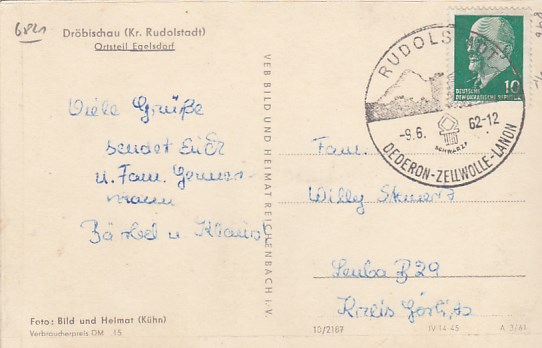 Dröbischau (Kr. Rudolstadt)
Ortsteil Egelsdorf
Viele Grüße
sendet Euch
u. Fam.
mann
Bärbel u. Klaus
Foto: Bild und Heimat (Kühn)
Verbraucherpreis DM .15
VEB BILD UND HEIMAT REICHENBACH i. V.
RUDOLSTADT
-9.6. 62-12
DEDERON-ZELLWOLLE-LANON
DEUTSCHE
DEMOKRATISCHE REPUBLIK
10
Fam.
Willy
B 29
Kreis Görlitz
10/2167 IV-14-45 A 3/61